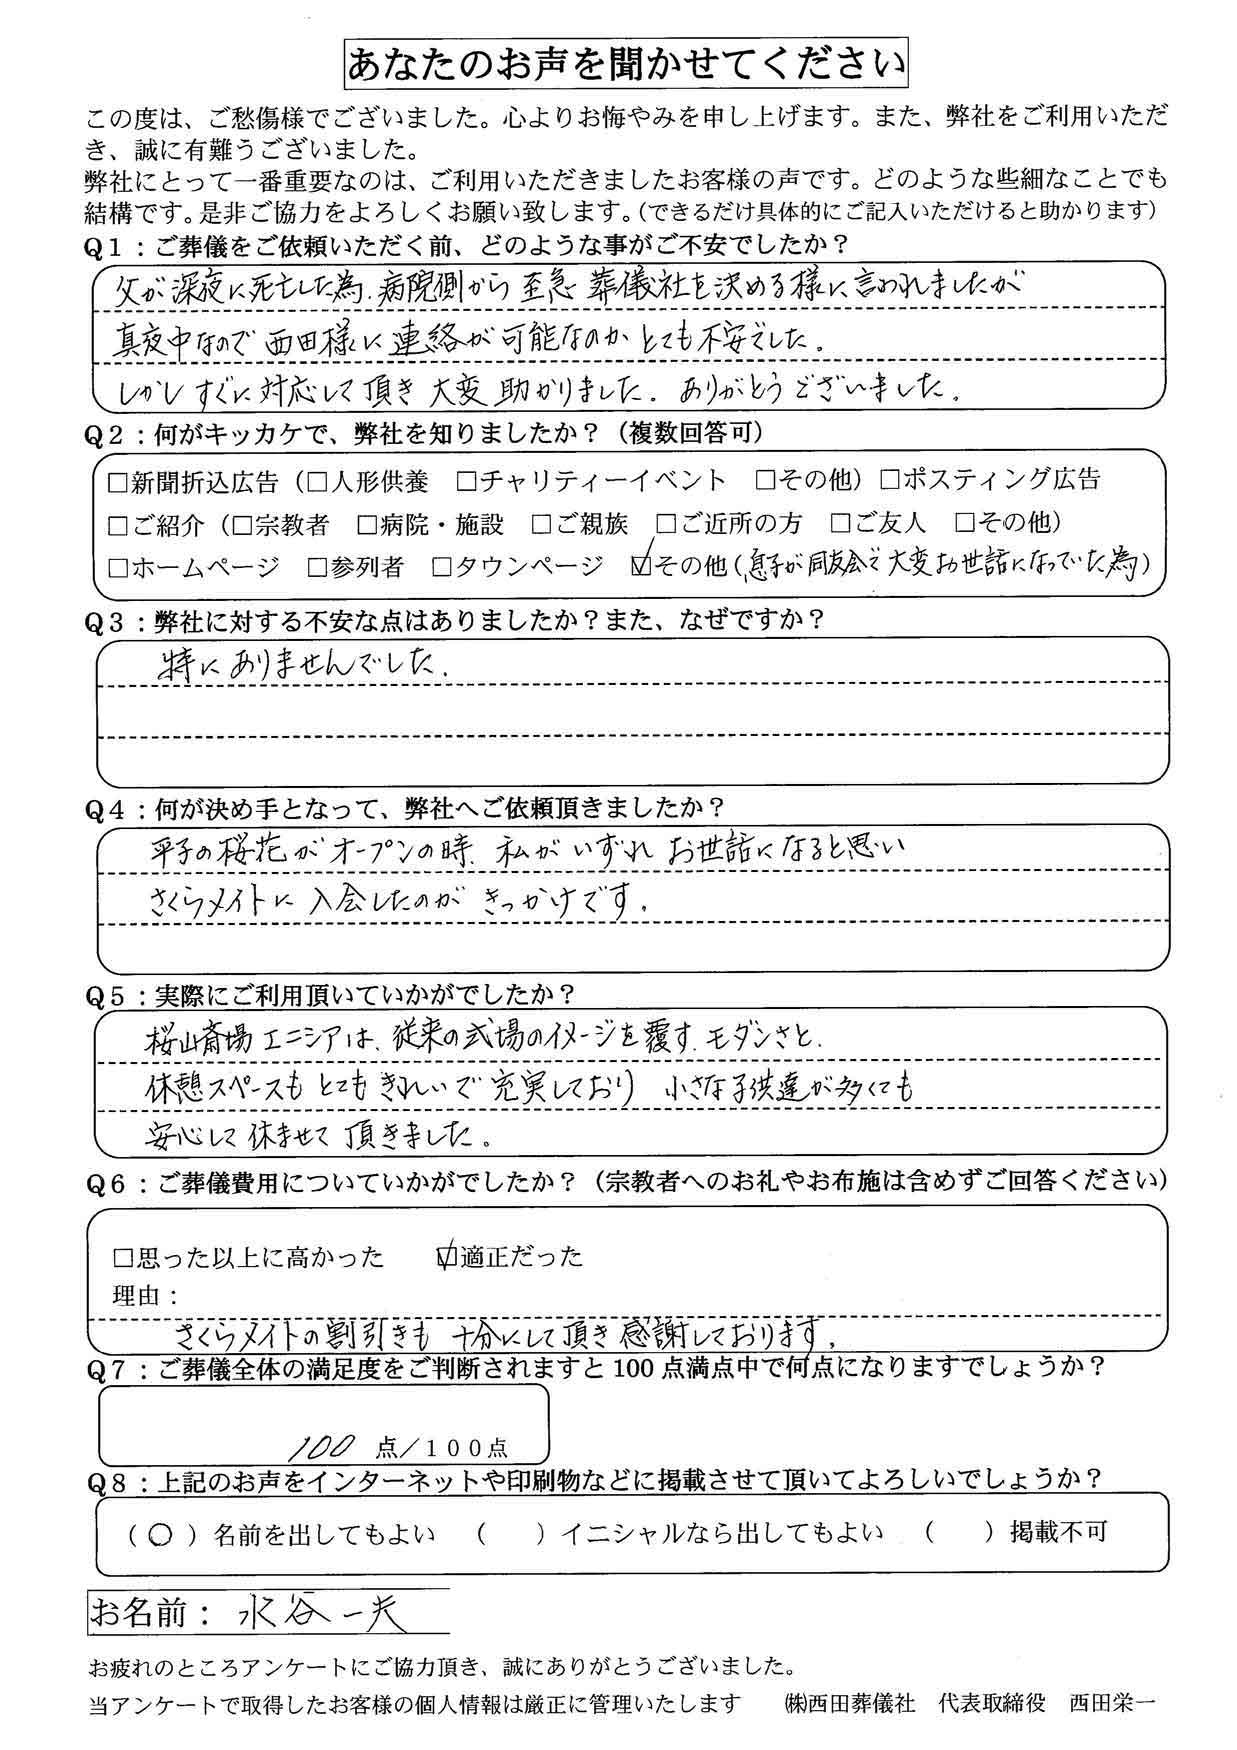 あなたのお声を聞かせてください
この度は、ご愁傷様でございました。心よりお悔やみを申し上げます。また、弊社をご利用いただ
き、誠に有難うございました。
弊社にとって一番重要なのは、ご利用いただきましたお客様の声です。どのような些細なことでも
結構です。是非ご協力をよろしくお願い致します。（できるだけ具体的にご記入いただけると助かります）
Ｑ１：ご葬儀をご依頼いただく前、どのような事がご不安でしたか？
父が深夜に死亡した為、病院側から至急葬儀社を決める様に言われましたが
真夜中なので西田様に連絡が可能なのかとても不安でした。
しかしすぐに対応して頂き大変助かりました。ありがとうございました。
Ｑ２：何がキッカケで、弊社を知りましたか？（複数回答可）
□新聞折込広告（□人形供養　□チャリティーイベント　□その他）□ポスティング広告
□ご紹介（□宗教者　□病院・施設　□ご親族　□ご近所の方　□ご友人　□その他）
□ホームページ　□参列者　□タウンページ　☑その他（息子が同友会で大変お世話になっていた為）
Ｑ３：弊社に対する不安な点はありましたか？また、なぜですか？
特にありませんでした。
Ｑ４：何が決め手となって、弊社へご依頼頂きましたか？
平子の桜花がオープンの時、私がいずれお世話になると思い
さくらメイトに入会したのがきっかけです。
Ｑ５：実際にご利用頂いていかがでしたか？
桜山斎場エニシアは、従来の式場のイメージを覆す、モダンさと、
休憩スペースもとてもきれいで充実しており小さな子供達が多くても
安心して休ませて頂きました。
Ｑ６：ご葬儀費用についていかがでしたか？（宗教者へのお礼やお布施は含めずご回答ください）
□思った以上に高かった　☑適正だった
理由：
さくらメイトの割引きも十分にして頂き感謝しております。
Ｑ７：ご葬儀全体の満足度をご判断されますと100点満点中で何点になりますでしょうか？
100 点／１００点
Ｑ８：上記のお声をインターネットや印刷物などに掲載させて頂いてよろしいでしょうか？
（○）名前を出してもよい　（　）イニシャルなら出してもよい　（　）掲載不可
お名前：水谷一夫
お疲れのところアンケートにご協力頂き、誠にありがとうございました。
当アンケートで取得したお客様の個人情報は厳正に管理いたします　㈱西田葬儀社　代表取締役　西田栄一